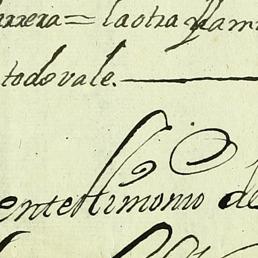 rrera = la otra
todo vale.
en testimonio de